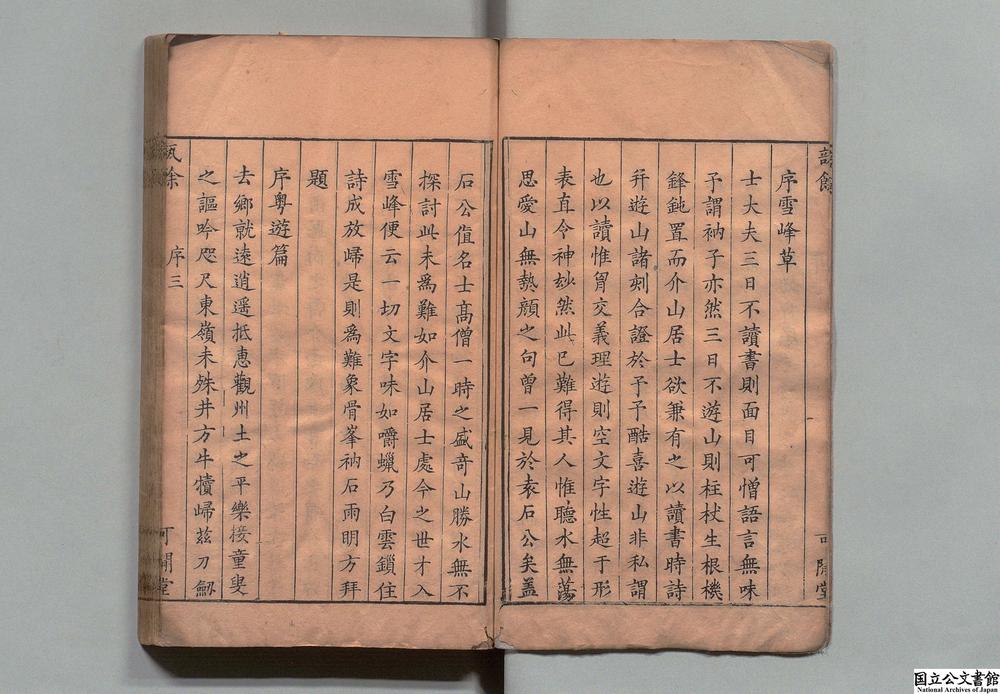 序雪峰草
士大夫三日不讀書則面目可憎語言無味
予謂衲子亦然三日不遊山則柱杖生根機
鋒鈍置而介山居士欲兼有之以讀書時詩
并遊山諸刻合證於予予酷喜遊山非私謂
也以讀惟胷交義理遊則空文字性超于形
表直令神玅然此已難得其人惟聽水無蕩
思愛山無𫝑顔之句曾一見於袁石公矣盖
石公值名士髙僧一時之盛奇山勝水無不
探討此未爲難如介山居士處今之世才入
雪峰便云一切文字味如嚼蠟乃白雲鎖住
詩成放歸是則爲難象骨峯衲石雨明方拜
題
序粤遊篇
去鄉就遠逍遥抵惠觀州土之平樂接童叟
之謳吟咫尺東嶺未殊井方牛犢歸茲刀劒
序三
可閒堂